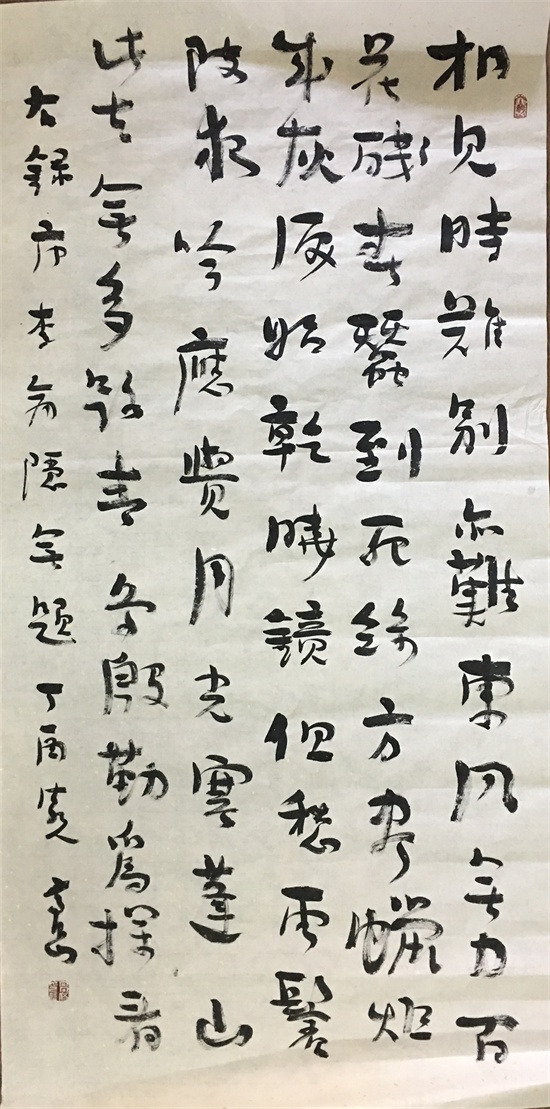 相見時難別亦難東風無力百
花殘春蠶到死絲方盡蠟炬
成灰淚始乾曉鏡但愁雲鬢
改夜吟應覺月光寒蓬山
此去無多路青鳥殷勤爲探看
右錄唐李商隱無題丁酉